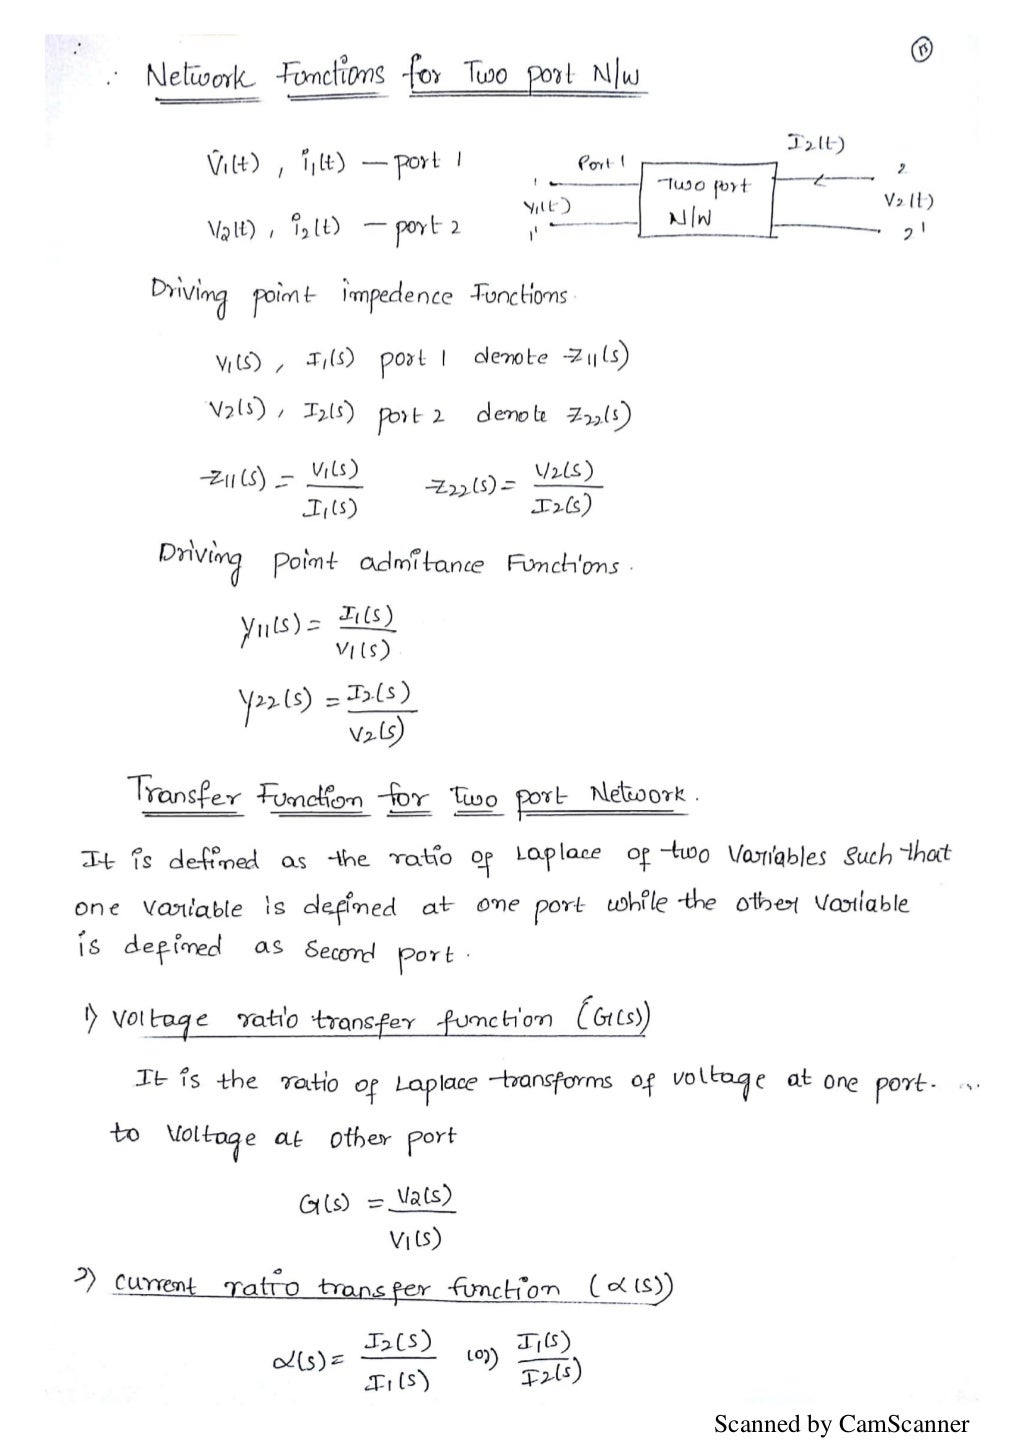 15
∴ Network Functions for Two port N/w
V1(t), i1(t) — port 1
Port 1
I2(t)
1
Two port N/W
2
V1(t)
V2(t)
1'
2'
V2(t), i2(t) — port 2
Driving point impedence Functions.
V1(s), I1(s) port 1 denote Z11(s)
V2(s), I2(s) port 2 denote Z22(s)
Z11(s) = V1(s) / I1(s)   Z22(s) = V2(s) / I2(s)
Driving point admitance Functions.
Y11(s) = I1(s) / V1(s)
Y22(s) = I2(s) / V2(s)
Transfer Function for Two port Network.
It is defined as the ratio of Laplace of two variables such that
one variable is defined at one port while the other variable
is defined as second port.
1) Voltage ratio transfer function (G(s))
It is the ratio of Laplace transforms of voltage at one port.
to voltage at other port
G(s) = V2(s) / V1(s)
2) current ratio transfer function (α(s))
α(s) = I2(s) / I1(s) (or) I1(s) / I2(s)
Scanned by CamScanner